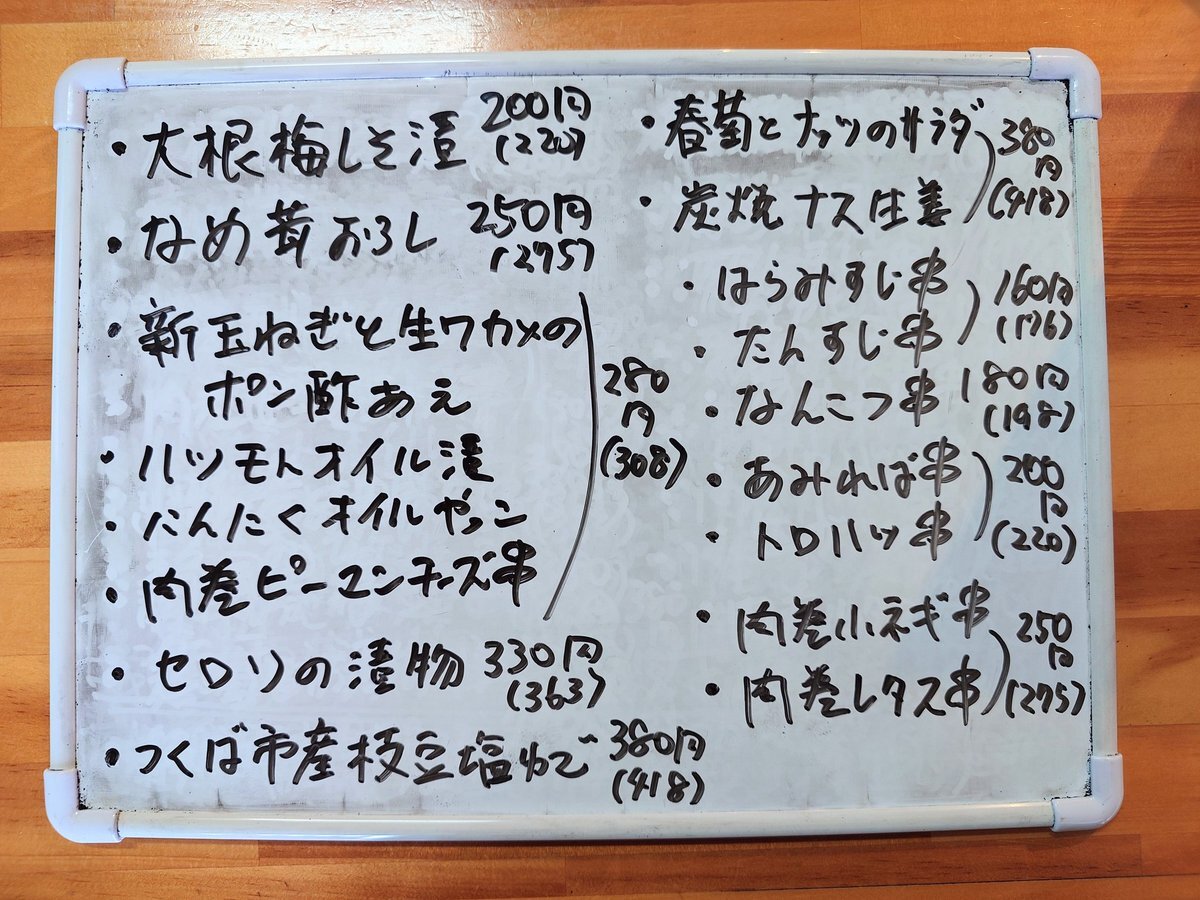 ・大根梅しそ漬 200円
(220)
・なめ茸おろし 250円
(275)
・新玉ねぎと生ワカメの
ポン酢あえ
・ハツモトオイル漬
・にんにくオイルヤッコ
・肉巻ピーマンチーズ串
280
円
(308)
・セロリの漬物 330円
(363)
・つくば市産枝豆塩ゆで 380円
(418)
・春菊とナッツのサラダ
・炭焼ナス生姜
380
円
(418)
・はらみすじ串
・たんすじ串
160円
(176)
・なんこつ串 180円
(198)
・あみればー串
・トロハツ串
200
円
(220)
・肉巻小ネギ串
・肉巻レタス串
250
円
(275)